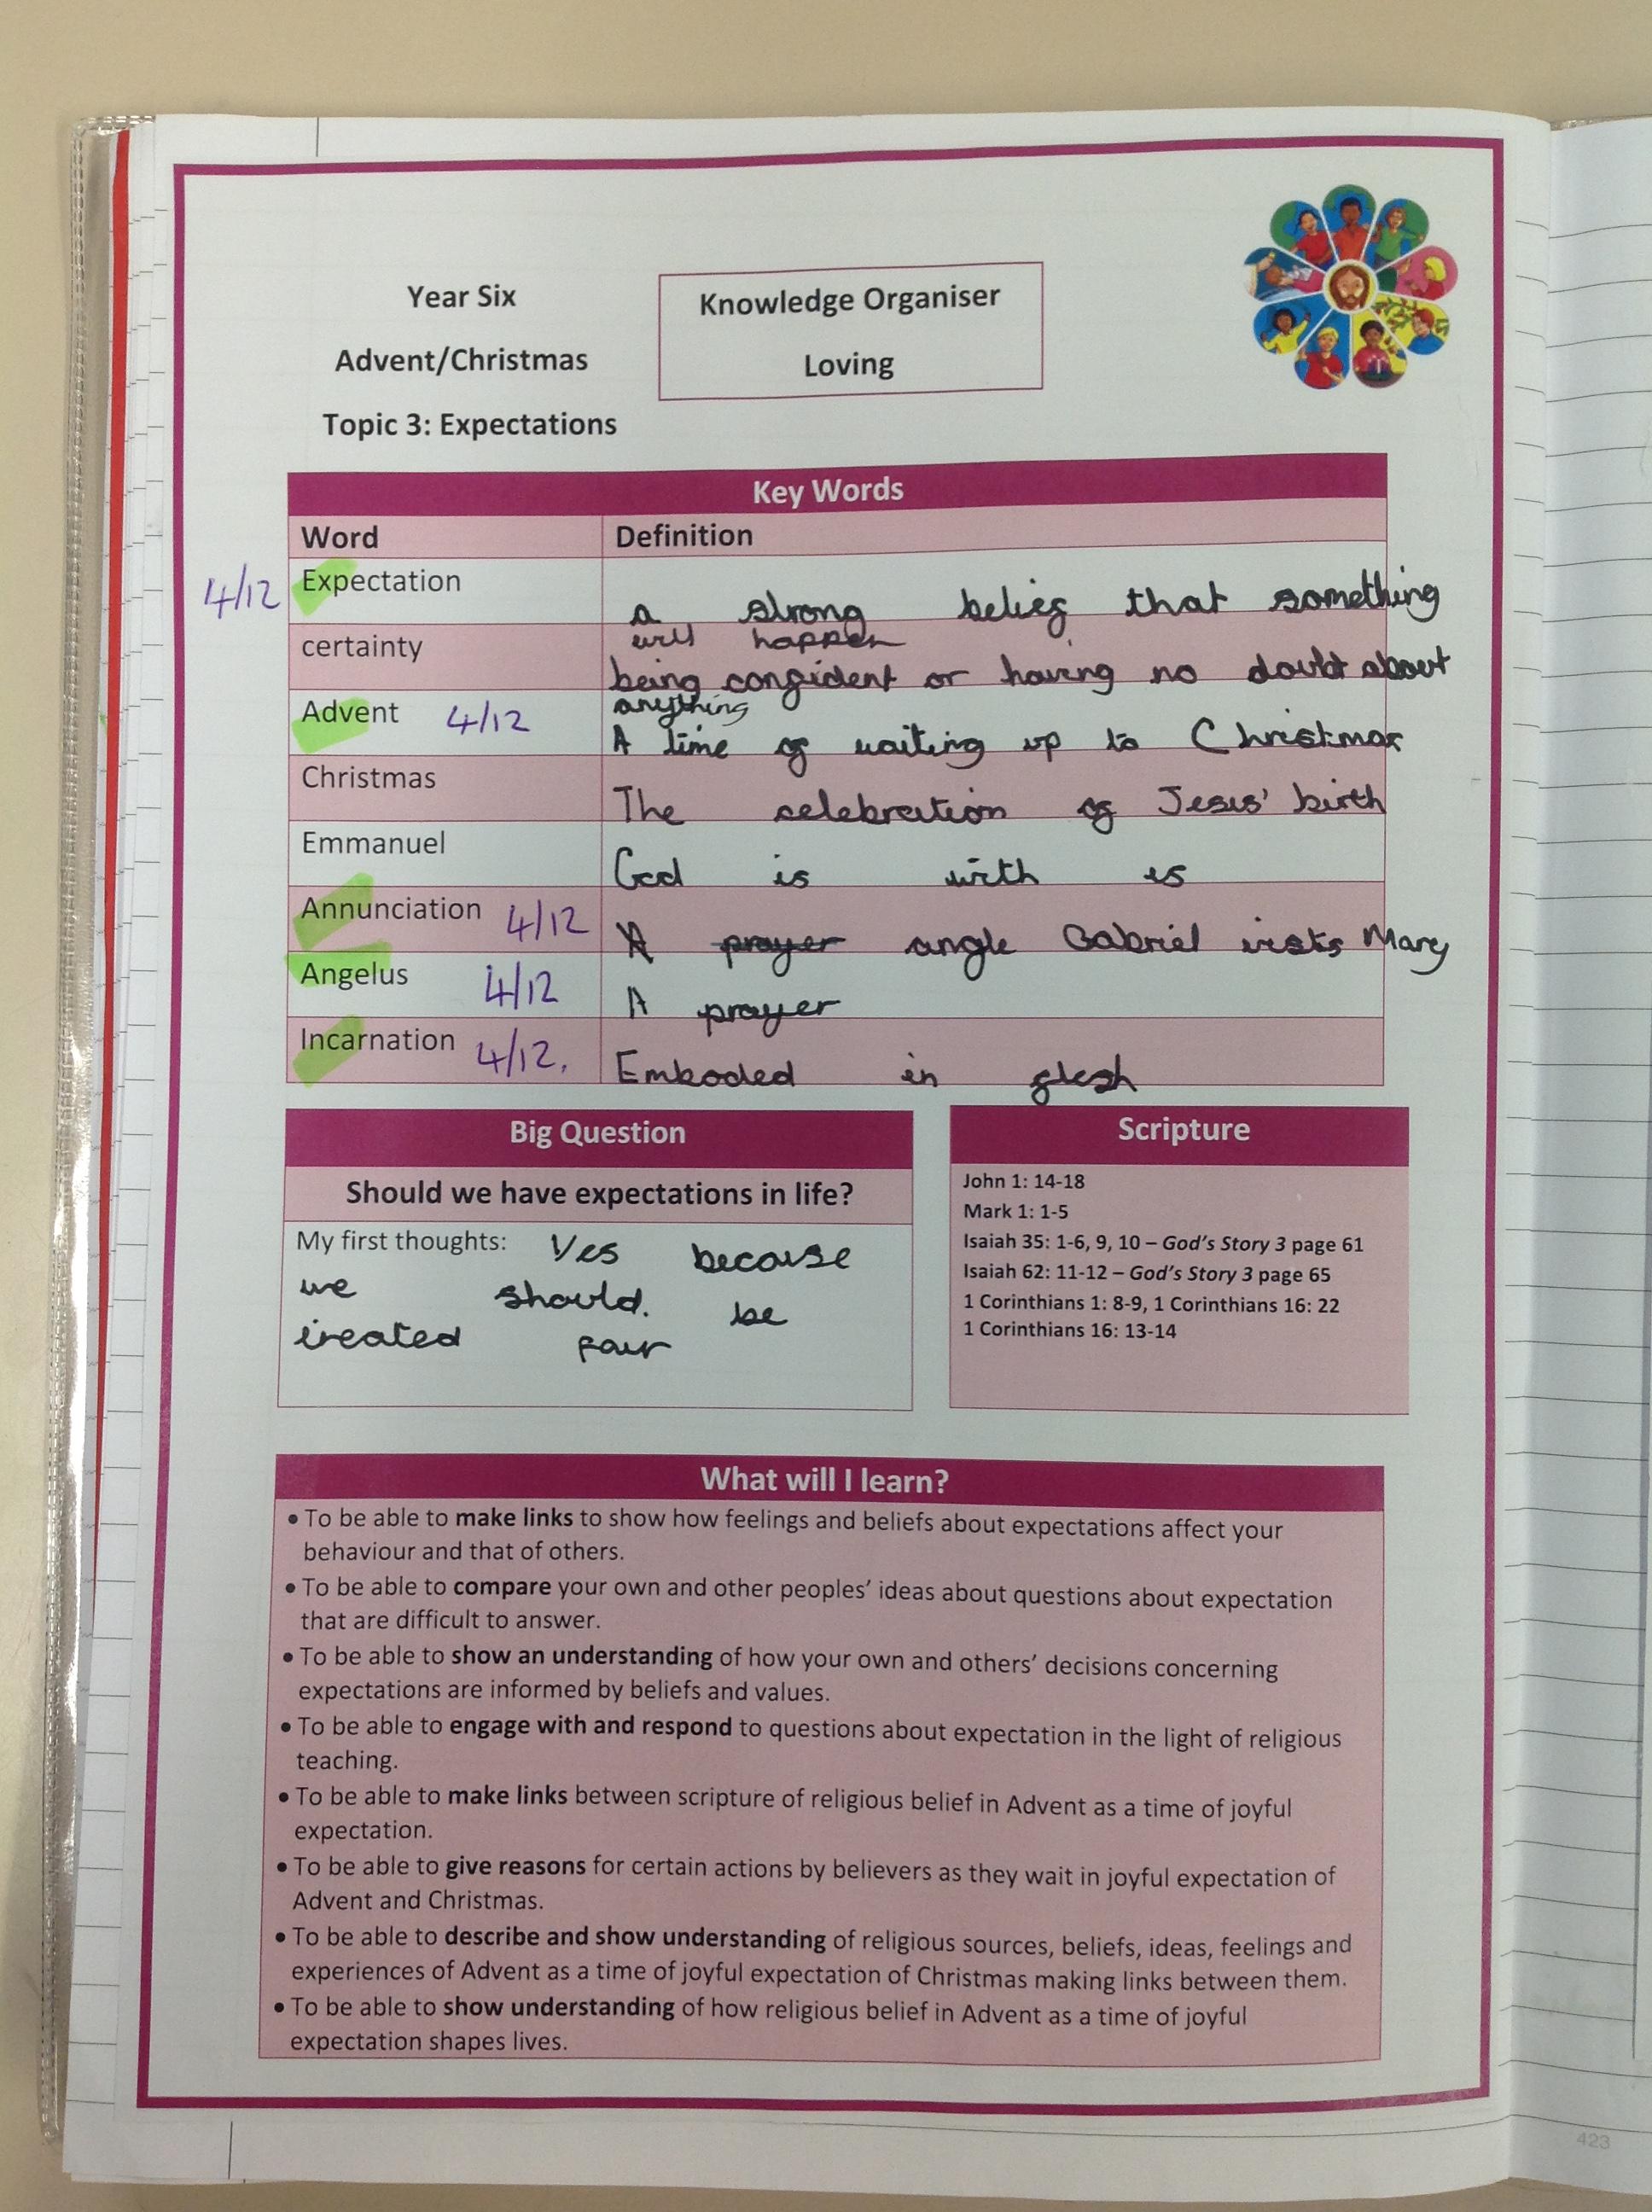 Year Six
Advent/Christmas
Topic 3: Expectations
Knowledge Organiser
Loving
Key Words
Word Definition
4/12 Expectation a strong belief that something
will happen
certainty being confident or having no doubt about
anything
Advent 4/12 A time of waiting up to Christmas
Christmas The celebration of Jesus' birth
Emmanuel God is with us
Annunciation 4/12 A prayer angle Gabriel visits Mary
Angelus 4/12 A prayer
Incarnation 4/12. Emboded in flesh
Big Question
Should we have expectations in life?
My first thoughts: Yes because
we should. be
treated fair
Scripture
John 1: 14-18
Mark 1: 1-5
Isaiah 35: 1-6, 9, 10 – God's Story 3 page 61
Isaiah 62: 11-12 – God's Story 3 page 65
1 Corinthians 1: 8-9, 1 Corinthians 16: 22
1 Corinthians 16: 13-14
What will I learn?
• To be able to make links to show how feelings and beliefs about expectations affect your
behaviour and that of others.
• To be able to compare your own and other peoples' ideas about questions about expectation
that are difficult to answer.
• To be able to show an understanding of how your own and others' decisions concerning
expectations are informed by beliefs and values.
• To be able to engage with and respond to questions about expectation in the light of religious
teaching.
• To be able to make links between scripture of religious belief in Advent as a time of joyful
expectation.
• To be able to give reasons for certain actions by believers as they wait in joyful expectation of
Advent and Christmas.
• To be able to describe and show understanding of religious sources, beliefs, ideas, feelings and
experiences of Advent as a time of joyful expectation of Christmas making links between them.
• To be able to show understanding of how religious belief in Advent as a time of joyful
expectation shapes lives.
423